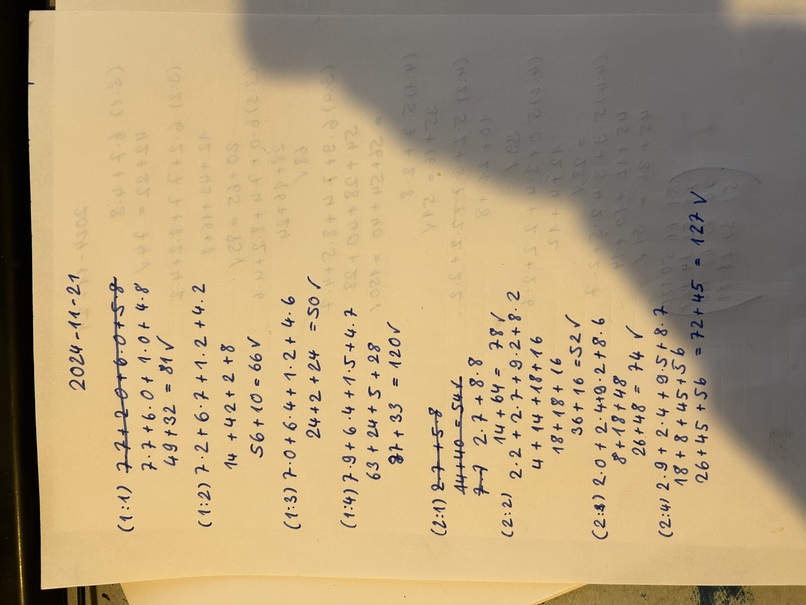 2024-11-21
(1:1) 7·7+2·0+6·0+5·8
7·7+6·0+1·0+4·8
49+32 = 81√
(1:2) 7·2+6·7+1·2+4·2
14+42+2+8
56+10=66√
(1:3) 7·0+6·4+1·2+4·6
24+2+24 =50√
(1:4) 7·9+6·4+1·5+4·7
63+24+5+28
87+33 =120√
(2:1) 2·7+5·8
14+40=54√
7·7 2·7+8·8
14+64= 78√
(2:2) 2·2+2·7+9·2+8·2
4+14+18+16
18+18+16
36+16=52√
(2:3) 2·0+2·4+9·2+8·6
8+18+48
26+48=74√
(2:4) 2·9+2·4+9·5+8·7
18+8+45+56
26+45+56 =72+45 = 127√